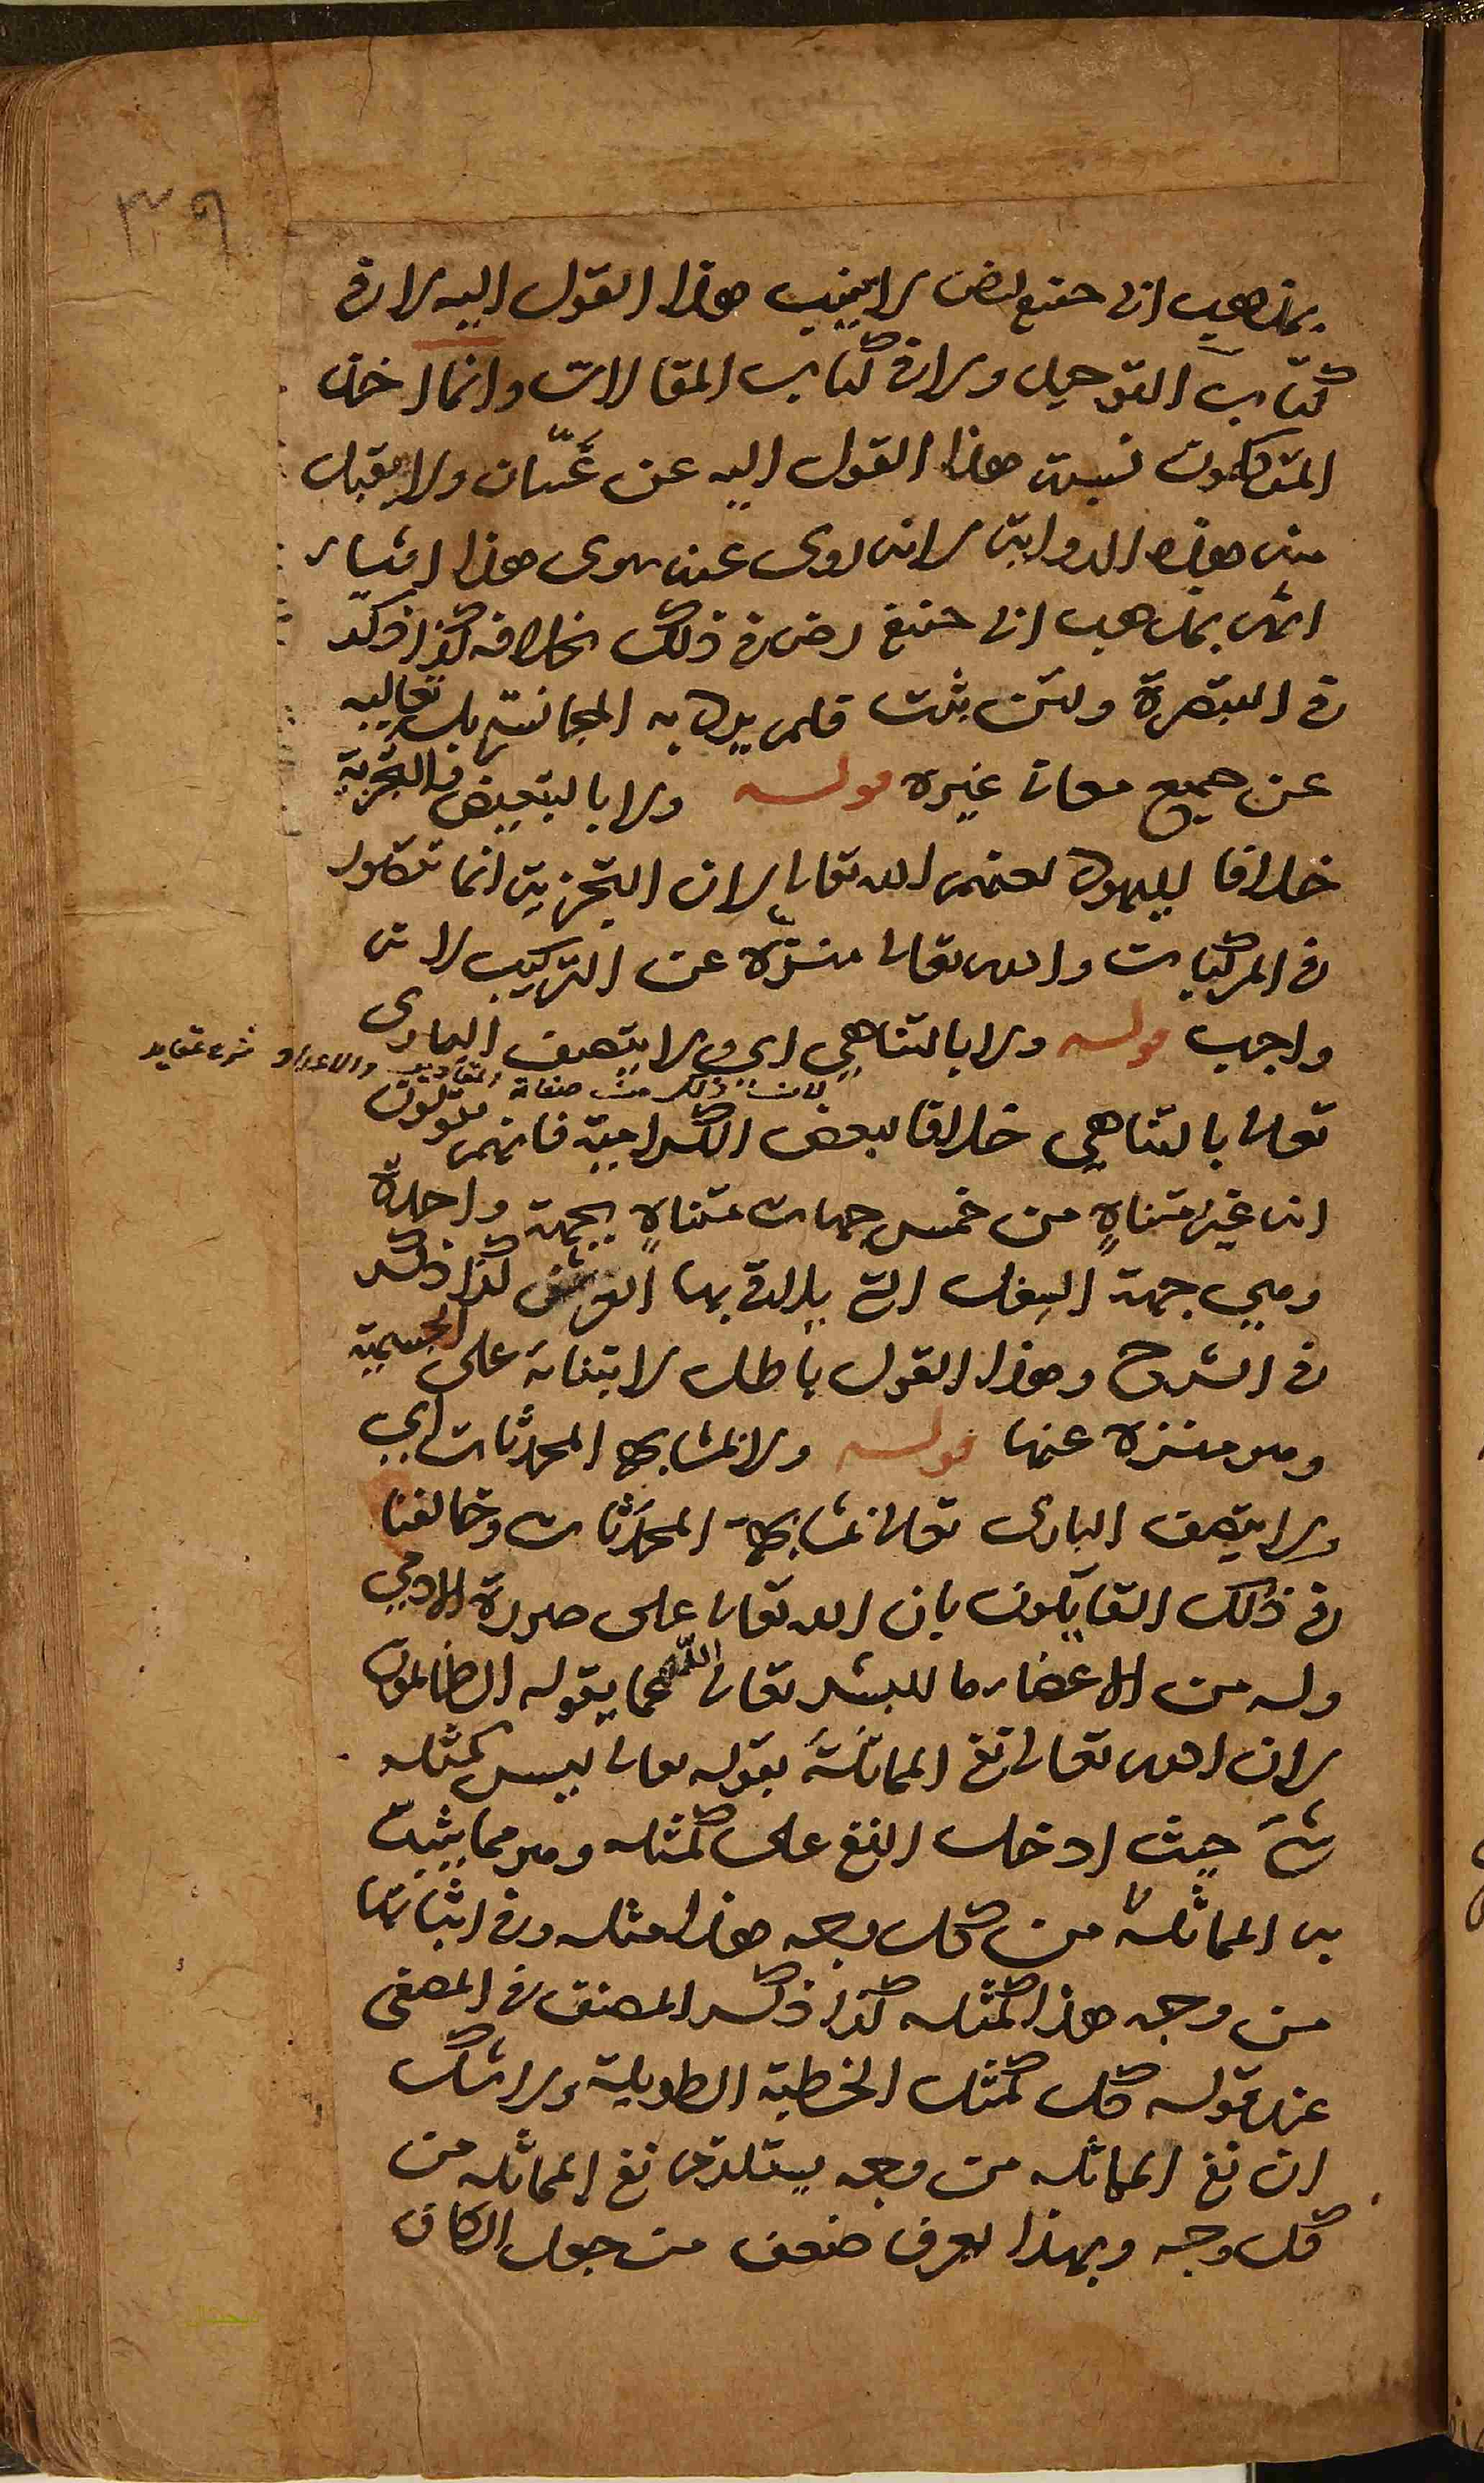 ٣٩
بمذهب ابى حنيفه رض لا ينسب هذا القول اليه لا فى
كتاب التوحيد ولا فى كتاب المقالات وانما اخذ
المتكلمون نسبة هذا القول اليه عن غسّان ولا يقبل
منه هذه الرواية لانه روى عنه سوى هذا اشياء
انهم بمذهب ابى حنيفة رض فى ذلك بخلافه كذا ذكر
فى التبصرة ولئن ثبت فلم يرد به المجانسة بل تعاليه
عن جميع معانى غيره قوله ولا بالتبعيض والتجزية
خلافا لليهود لعنهم الله تعالى لان التجزية انما تتصور
فى المركبات والله تعالى منزّه عن التركيب لانه
واجب قوله ولا بالتناهي اى ولا يتصف البارى
لان ذلك من صفات المقادير والاعداد شرح عقايد
تعالى بالتناهي خلافا لبعض الكرامية فانهم يقولون
انه غير متناهٍ من خمس جهات متناهٍ بجهة واحدة
وهي جهة السفل التى يلاقى بها العرش كذا ذكر
فى الشرح وهذا القول باطل لابتنائه على الجسمية
وهو منزه عنها قوله ولا بمشابهة المحدثات اي
ولا يتصف البارى تعالى بمشابهة المحدَثات وخالفنا
فى ذلك القايلون بان الله تعالى على صورة الادمي
وله من الاعضاء ما للبشر تعالى الله عما يقوله الظالمون
لان الله تعالى نفى المماثلة بقوله تعالى ليس كمثله
شئ حيث ادخل النفى على كمثله وهو مما يثبت
به المماثلة من كل وجه هذا مثله وفى اثباتها
من وجه هذا كمثله كذا ذكر المصنف فى المصفى
عند قوله كل كمثل الخطبة الطويلة ولا شك
ان نفى المماثله من وجه يستلزم نفى المماثله من
كل وجه وبهذا يعرف ضعف من جعل الكاف